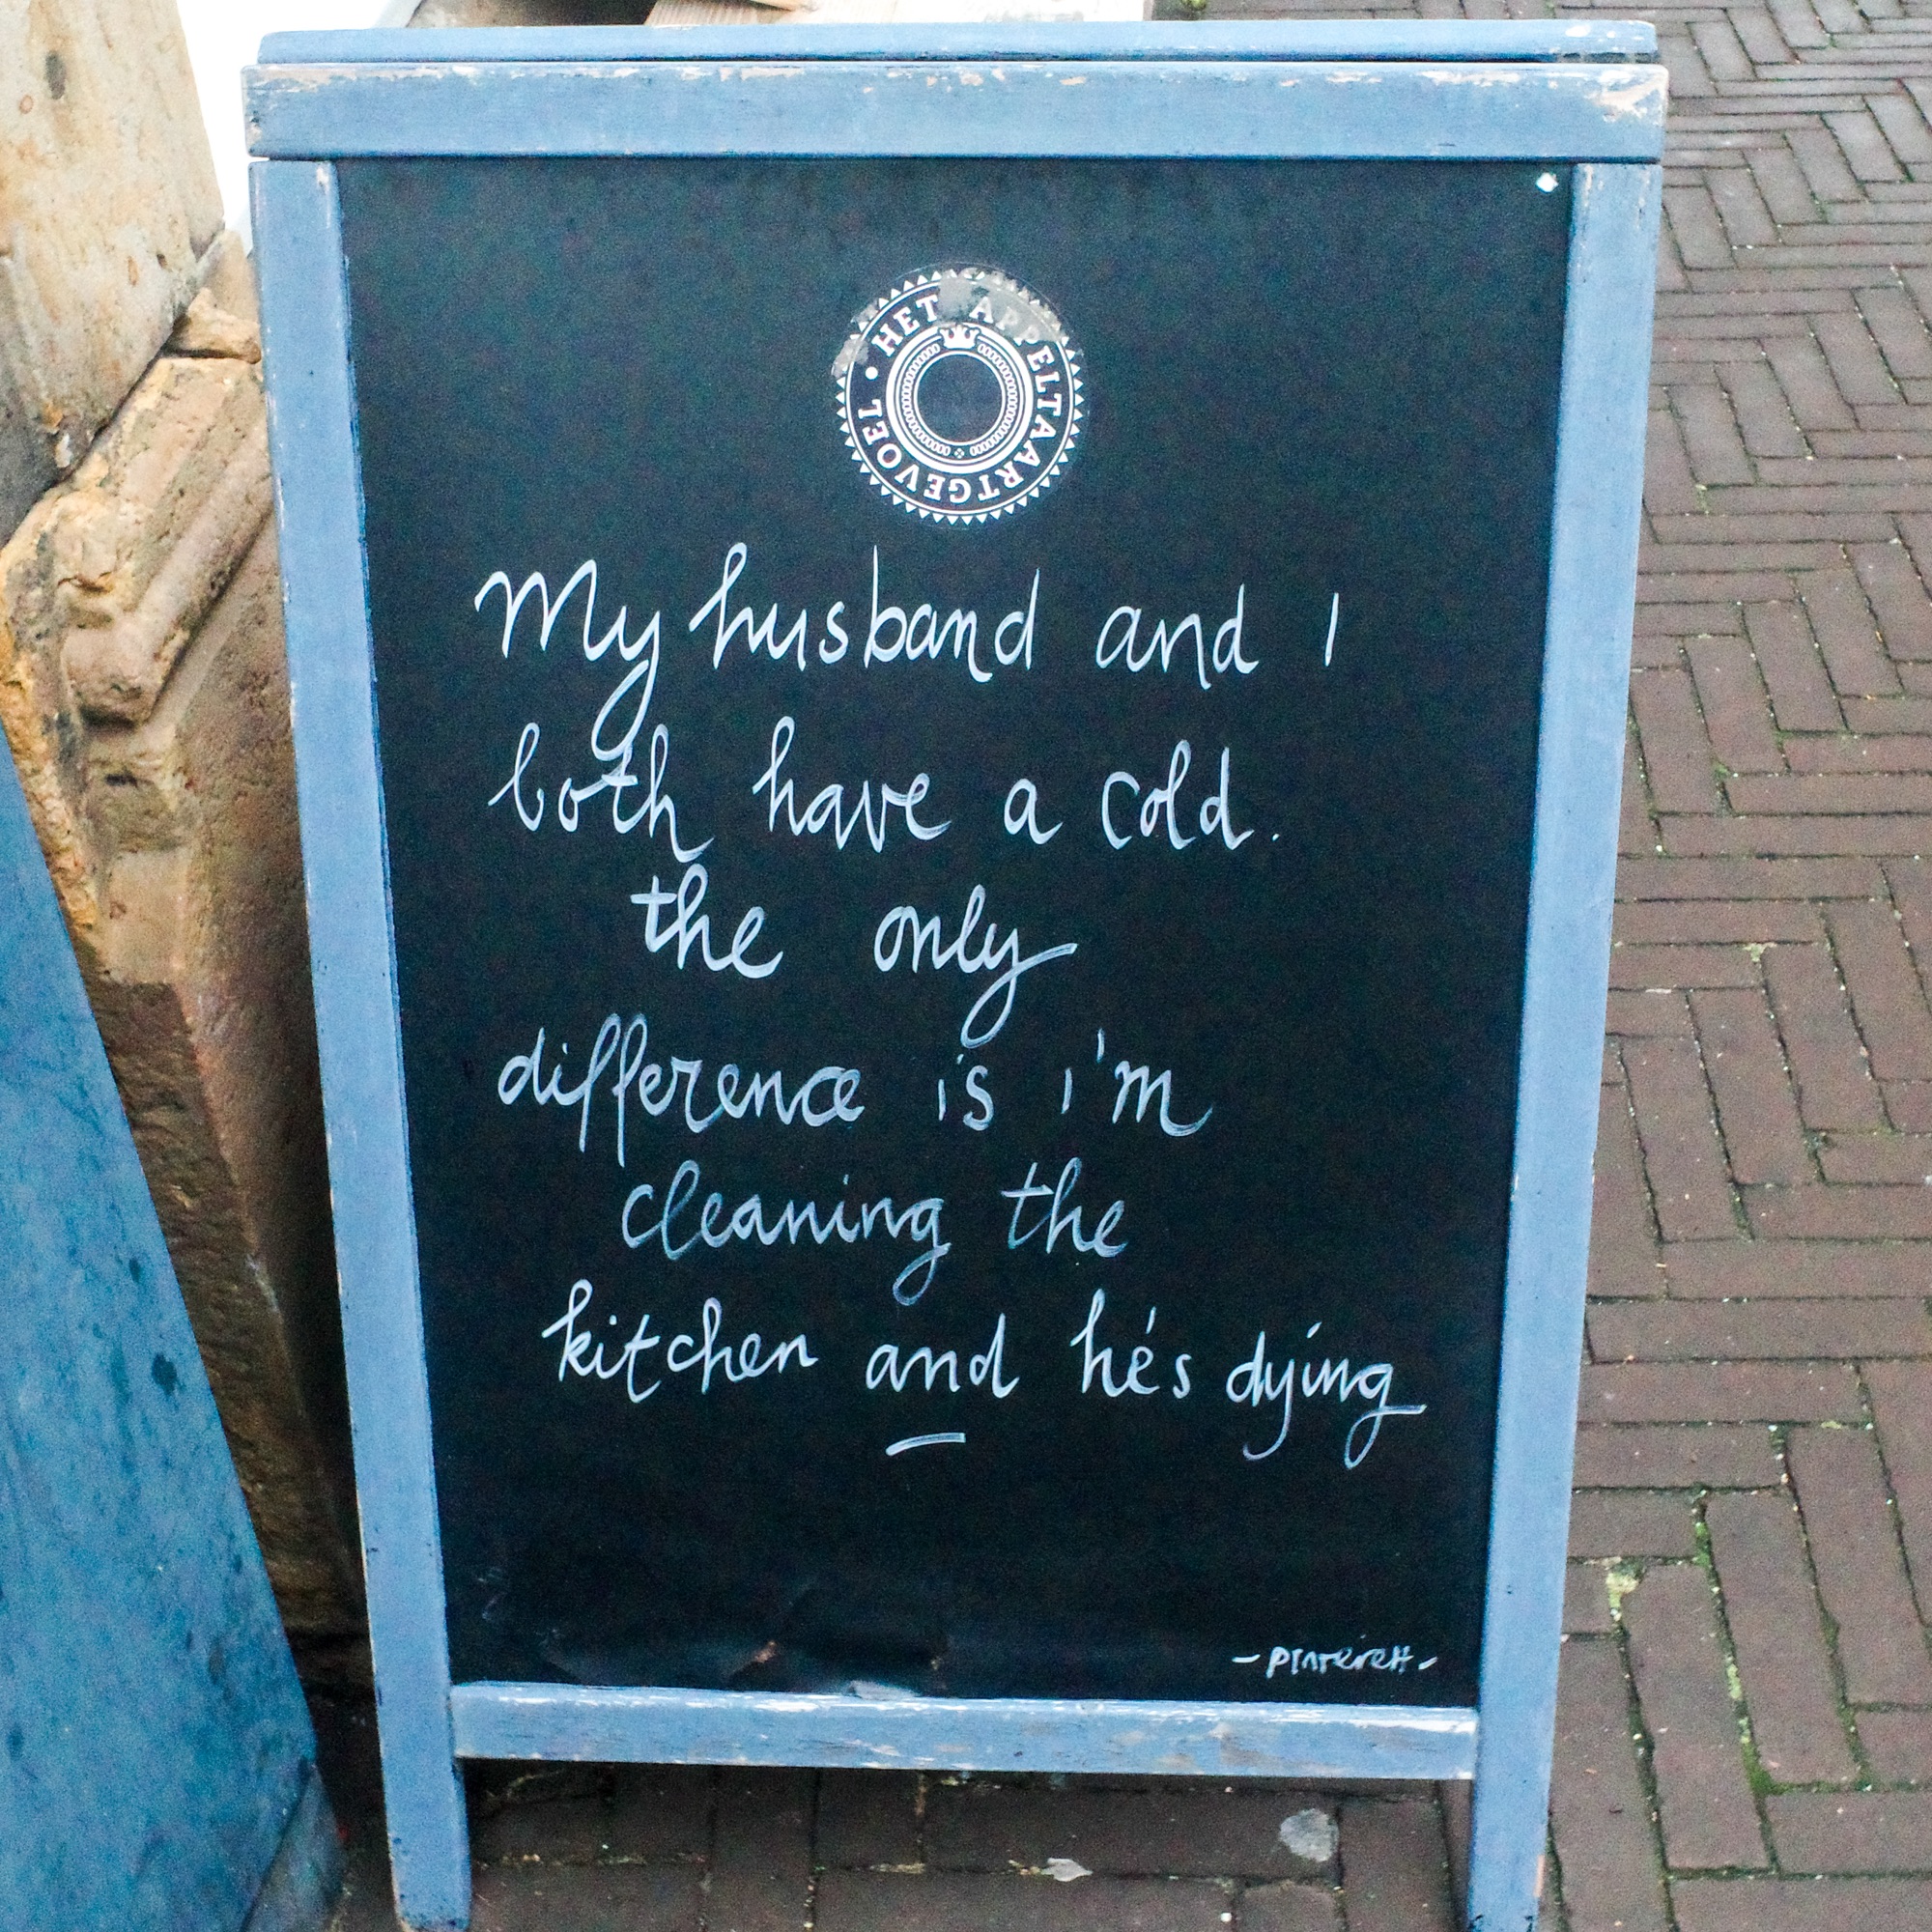 HET APPELTAARTGEVOEL •
My husband and I
both have a cold.
the only
difference is i'm
cleaning the
kitchen and he's dying
- pinterest -